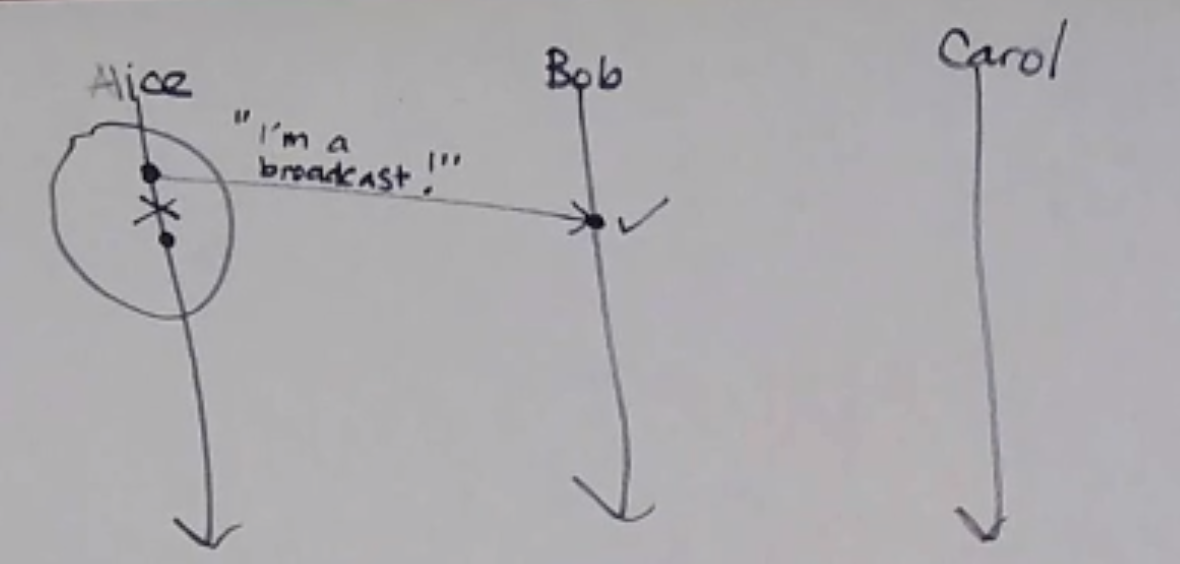 Alice
Bob
Carol
"I'm a
broadcast!"